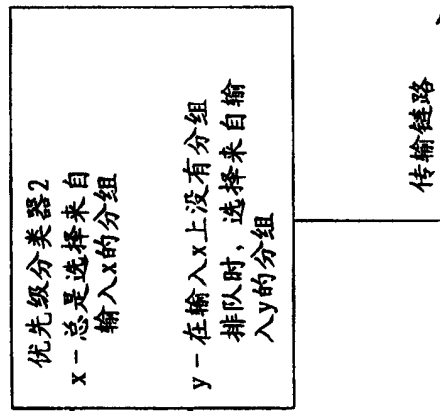 优先级分类器2
x－总是选择来自
输入x的分组
y－在输入x上没有分组
排队时，选择来自输
入y的分组
传输链路